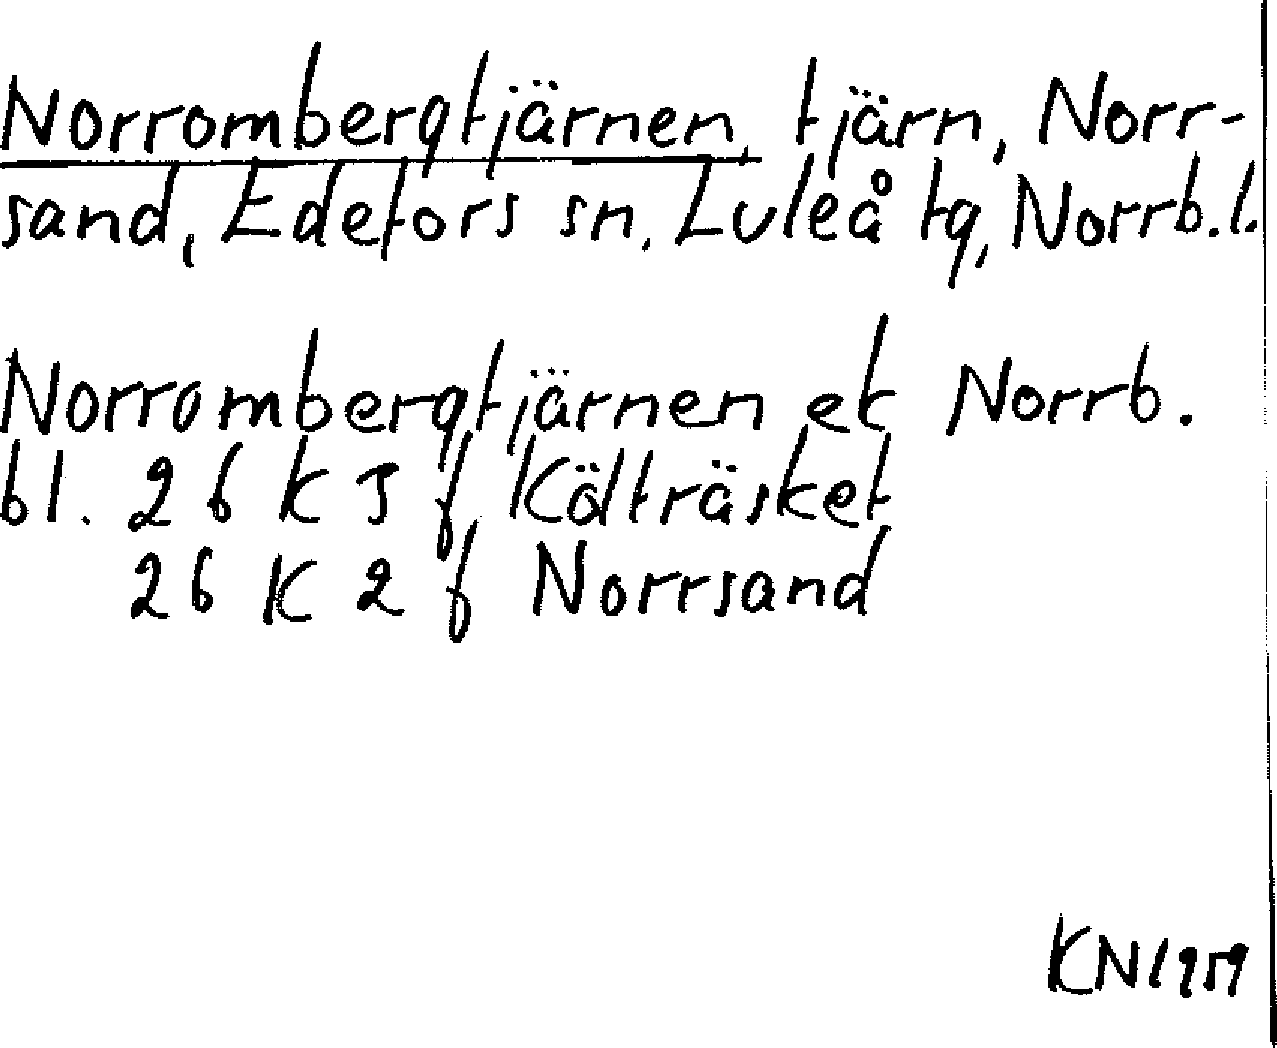 Norrombergtjärnen, tjärn, Norr-
sand, Edefors sn, Luleå tg, Norrb.l.
Norrombergtjärnen ek Norrb.
bl. 26 K J f Költräsket
26 K 2 f Norrsand
KN 1959